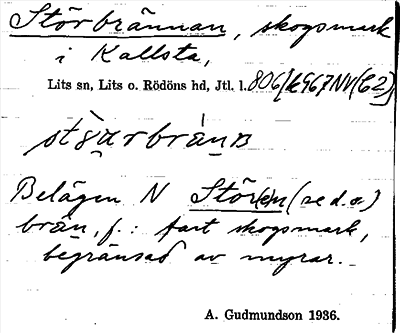 Störbrännan, skogsmark
i Kallsta,
Lits sn, Lits o. Rödöns hd, Jtl. l. 806/k967NV(C2)
Belägen N Stör(e)n (se d.o)
brän, f.: fast skogsmark,
begränsad av myrar.
A. Gudmundson 1936.